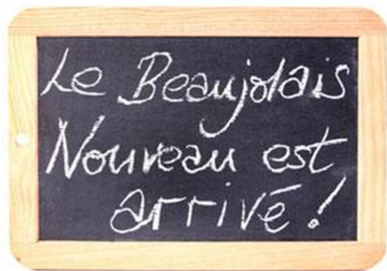 Le Beaujolais
Nouveau est
arrivé!